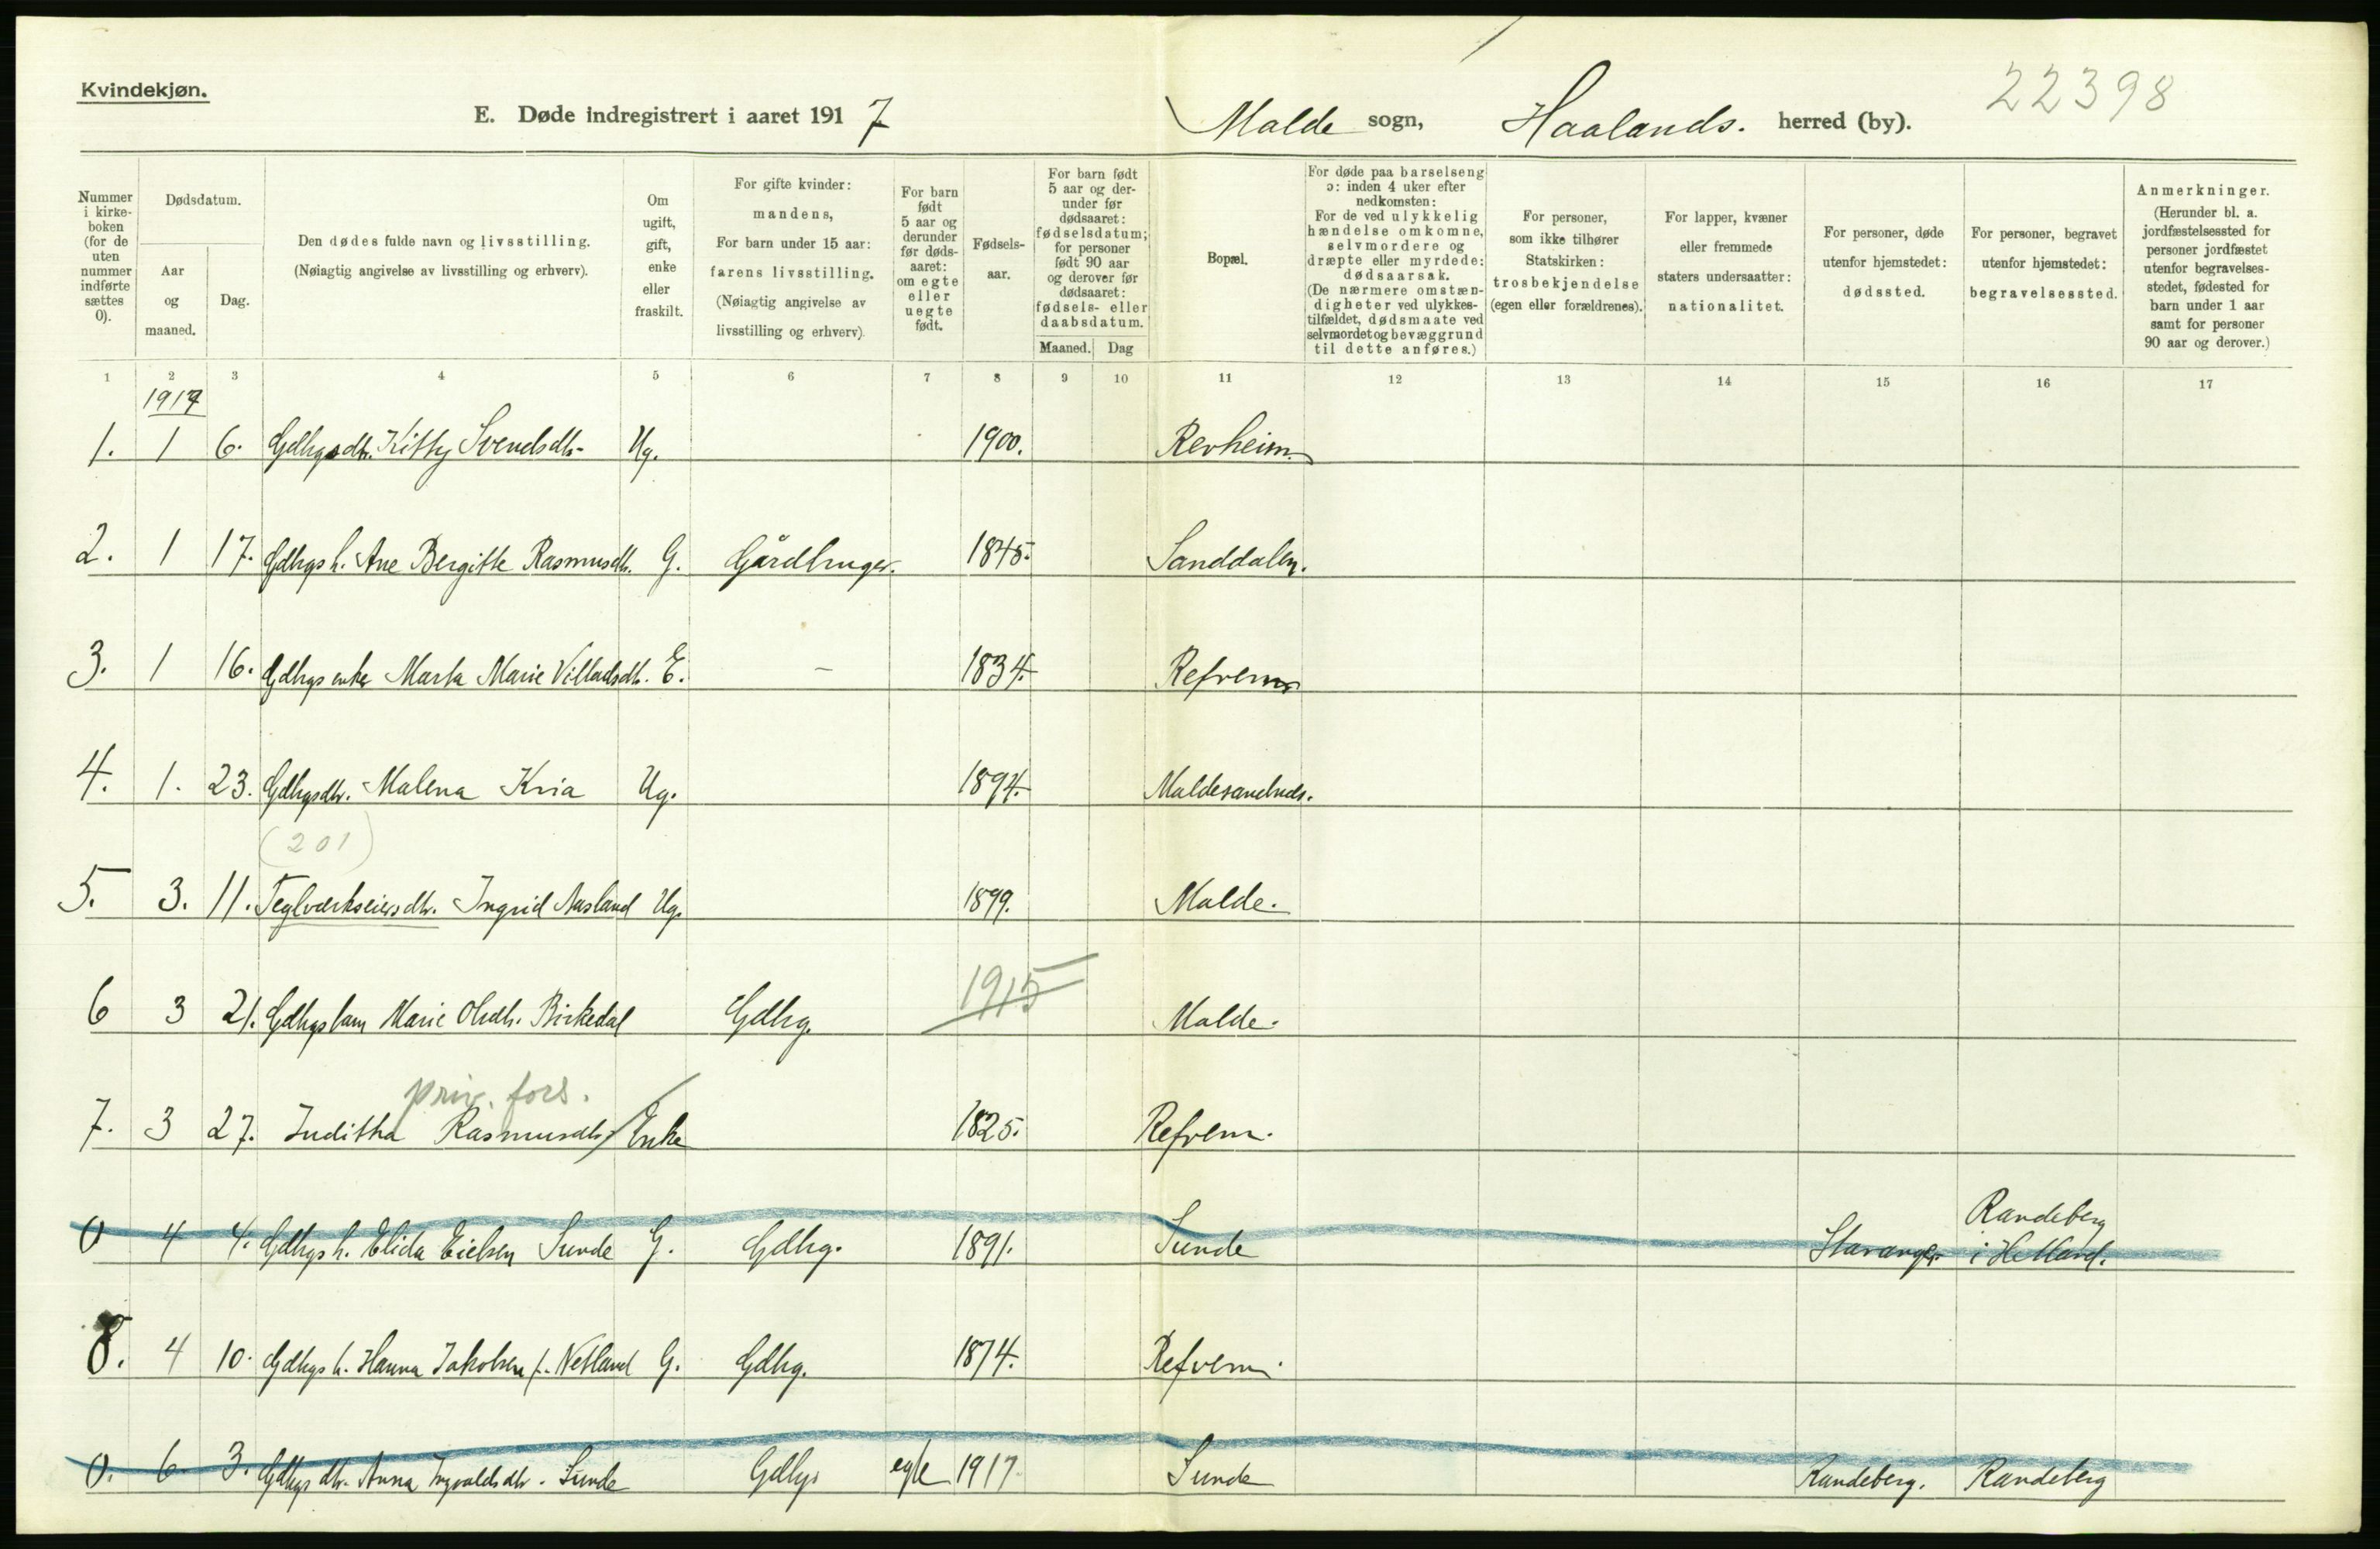 Kvindekjøn.
22398
E. Døde indregistrert i aaret 1917 Malde sogn, Haalands. herred (by).
Nummer i kirke- boken (for de uten nummer indførte sættes 0).
Dødsdatum.
Aar og maaned.
Dag.
Den dødes fulde navn og livsstilling.
(Nøiagtig angivelse av livsstilling og erhverv).
Om ugift, gift, enke eller fraskilt.
For gifte kvinder: mandens,
For barn under 15 aar: farens livsstilling.
(Nøiagtig angivelse av livsstilling og erhverv).
For barn født 5 aar og derunder før døds- aaret: om egte eller uegte født.
Fødsels- aar.
For barn født 5 aar og der- under før dødsaaret: fødselsdatum; for personer født 90 aar og derover før dødsaaret: fødsels- eller daabsdatum.
Maaned. Dag
Bopæl.
For døde paa barselseng ɔ: inden 4 uker efter nedkomsten:
For de ved ulykkelig hændelse omkomne, selvmordere og dræpte eller myrdede: dødsaarsak.
(De nærmere omstæn- digheter ved ulykkes- tilfældet, dødsmaate ved selvmordet og bevæggrund til dette anføres.)
For personer, som ikke tilhører Statskirken: trosbekjendelse (egen eller forældrenes).
For lapper, kvæner eller fremmede staters undersaatter: nationalitet.
For personer, døde utenfor hjemstedet: dødssted.
For personer, begravet utenfor hjemstedet: begravelsessted.
Anmerkninger.
(Herunder bl. a. jordfæstelsessted for personer jordfæstet utenfor begravelses- stedet, fødested for barn under 1 aar samt for personer 90 aar og derover.)
1 2 3 4 5 6 7 8 9 10 11 12 13 14 15 16 17
1917
1. 1 6. Gdbgsdtr. Kitty Svendsdtr. Ug. 1900. Revheim.
2. 1 17. Gdbrgs h. Ane Bergitte Rasmusdtr. G. Gårdbruger. 1845. Sanddalen.
3. 1 16. Gdbrgs enke Marta Marie Villadsdtr. E. – 1834. Refrem
4. 1. 23. Gdbgsdtr. Malena Kria Ug. 1894. Maldesandnds.
(201)
5. 3. 11. Teglværkseiersdtr. Ingrid Aasland Ug. 1899. Malde.
6 3 21. Gdbgs barn Marie Olsdtr. Birkedal Gdbrg. 1915 Malde.
priv. fors.
7. 3 27. Juditha Rasmusdtr. Enke 1825. Refrem.
Randeberg
0 4 4. Gdbrgs h. Elida Eielsen Sunde G. Gdbrg. 1891. Sunde Stavanger i Hetland.
8. 4 10. Gdbgs h. Hanna Jakobsen f. Netland G. Gdbrg. 1874. Refrem.
0. 6. 3. Gdbgs dtr. Anna Ingvaldsdtr. Sunde Gdbgs egte 1917 Sunde Randeberg. Randeberg